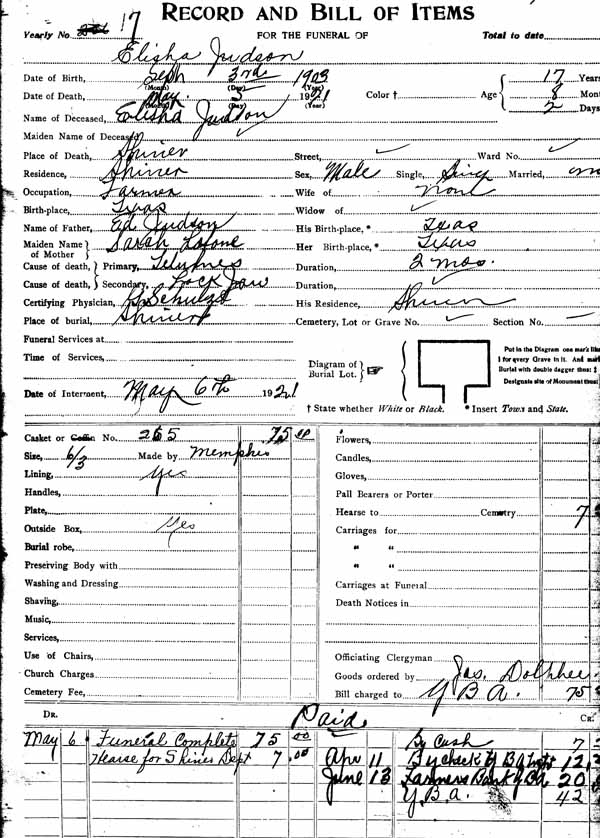 RECORD AND BILL OF ITEMS
Yearly No. 17 FOR THE FUNERAL OF Total to date
Elisha Judson
Date of Birth, Sept 3rd 1903 17 Years
(Month) (Day) (Year)
Date of Death, May 5 1921 Color † Age 8 Mont
(Month) (Day) (Year) 2 Days
Name of Deceased, Elisha Judson
Maiden Name of Deceased,
Place of Death, Shiner Street, Ward No.
Residence, Shiner Sex, Male Single, Sing Married,
Occupation, Farmer Wife of None
Birth-place, Texas Widow of
Name of Father, Ed Judson His Birth-place, * Texas
Maiden Name of Mother Sarah Her Birth-place, * Texas
Cause of death, Primary, Duration, 2 mos.
Cause of death, Secondary, Lock Jaw Duration,
Certifying Physician, Schulze His Residence, Shiner
Place of burial, Shiner Cemetery, Lot or Grave No. Section No.
Funeral Services at
Time of Services,
Diagram of Burial Lot.
Put in the Diagram one mark like
1 for every Grave in it. And mark
Burial with double dagger thus: ‡
Designate site of Monument thus:
Date of Interment, May 6th 1921
† State whether White or Black. * Insert Town and State.
Casket or Coffin No. 265 75 00 Flowers,
Size, 6/3 Made by Memphis Candles,
Lining, Yes Gloves,
Handles, Pall Bearers or Porter
Plate, Hearse to Cemetry 7
Outside Box, Yes Carriages for
Burial robe, " "
Preserving Body with " "
Washing and Dressing Carriages at Funeral
Shaving, Death Notices in
Music,
Services,
Use of Chairs, Officiating Clergyman
Church Charges Goods ordered by Jas.
Cemetery Fee, Bill charged to Y B A. 75
DR. Paid CR.
May 6 Funeral Complete 75 00 By Cash 7
Hearse for Shiner Dept 7.00 Apr 11 By check Y B A 12
June 13 Farmers Bank Y BA 20
Y.B.a. 42